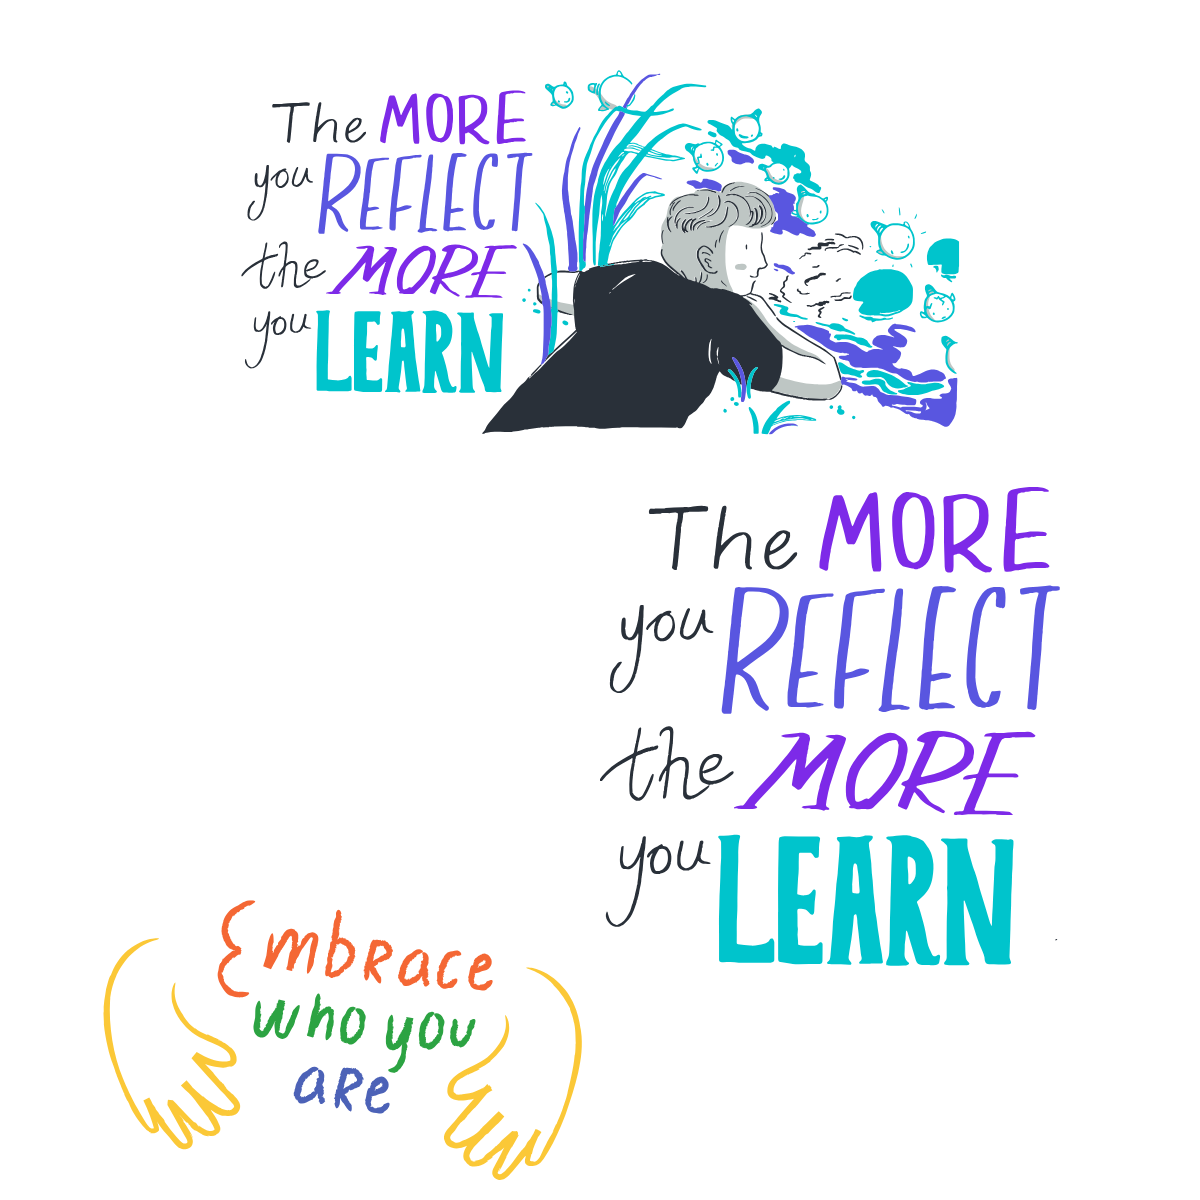 The MORE
you REFLECT
the MORE
you LEARN
The MORE
you REFLECT
the MORE
you LEARN
EmbRace
who you
aRe